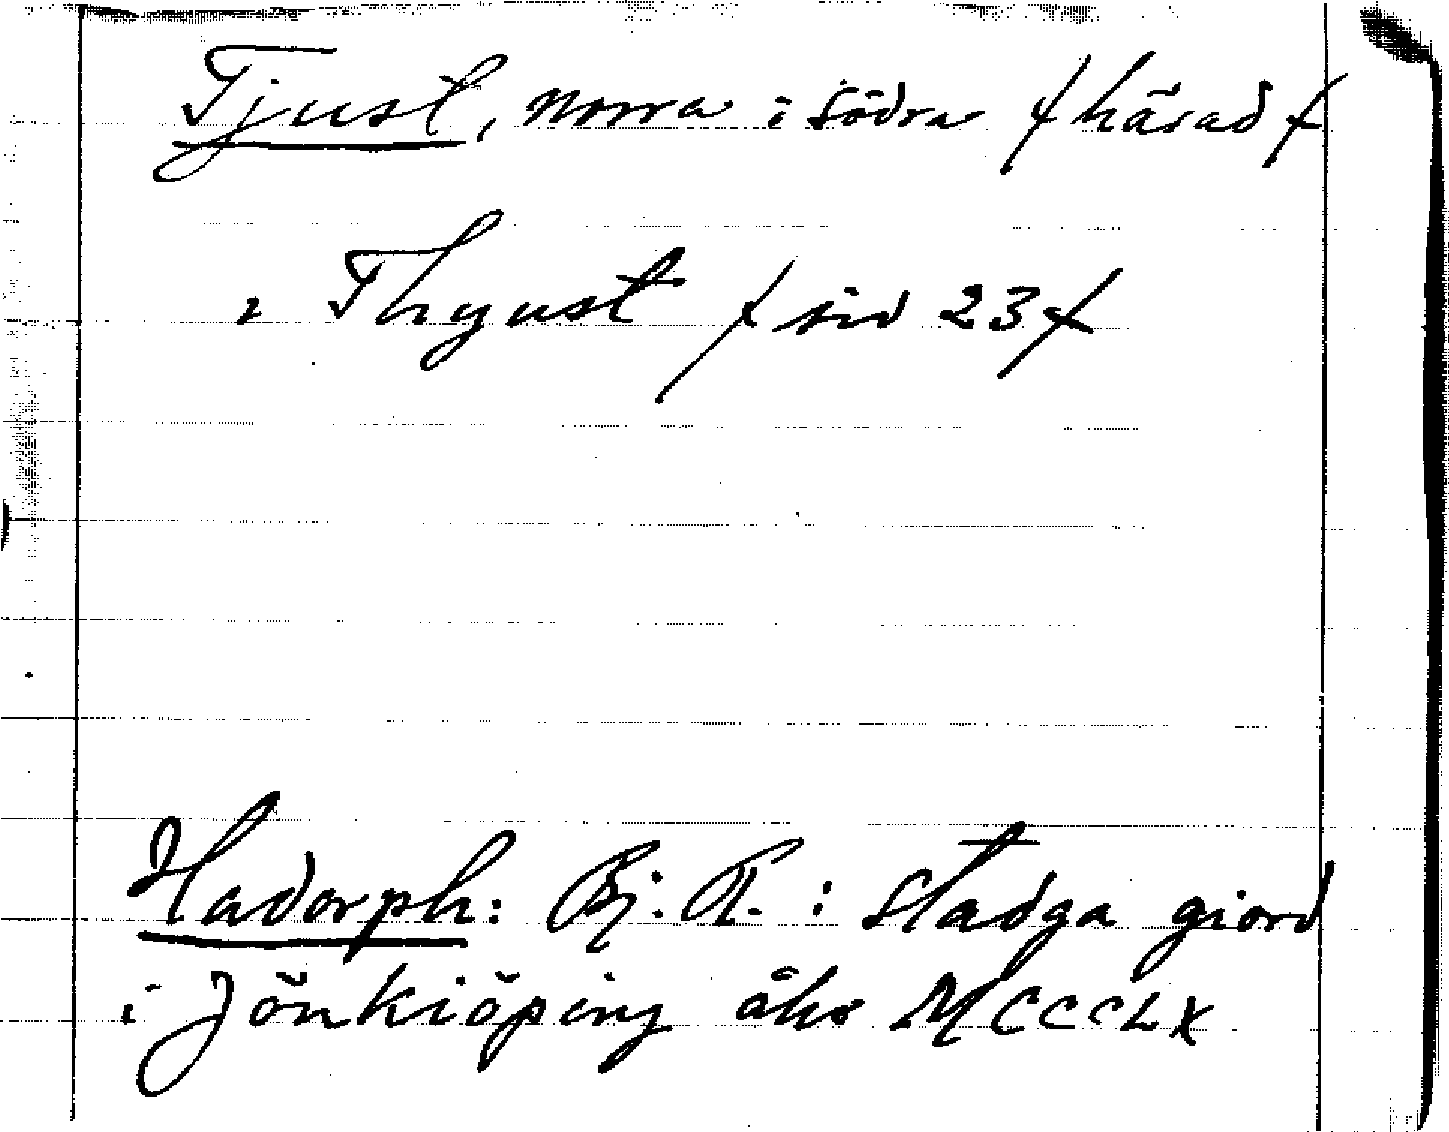 Tjust, norra i södra / härad /
i Thyust / sid 23 /
Hadorph: Bj. R. : Stadga giord
i Jönkiöping åhr MCCCLX